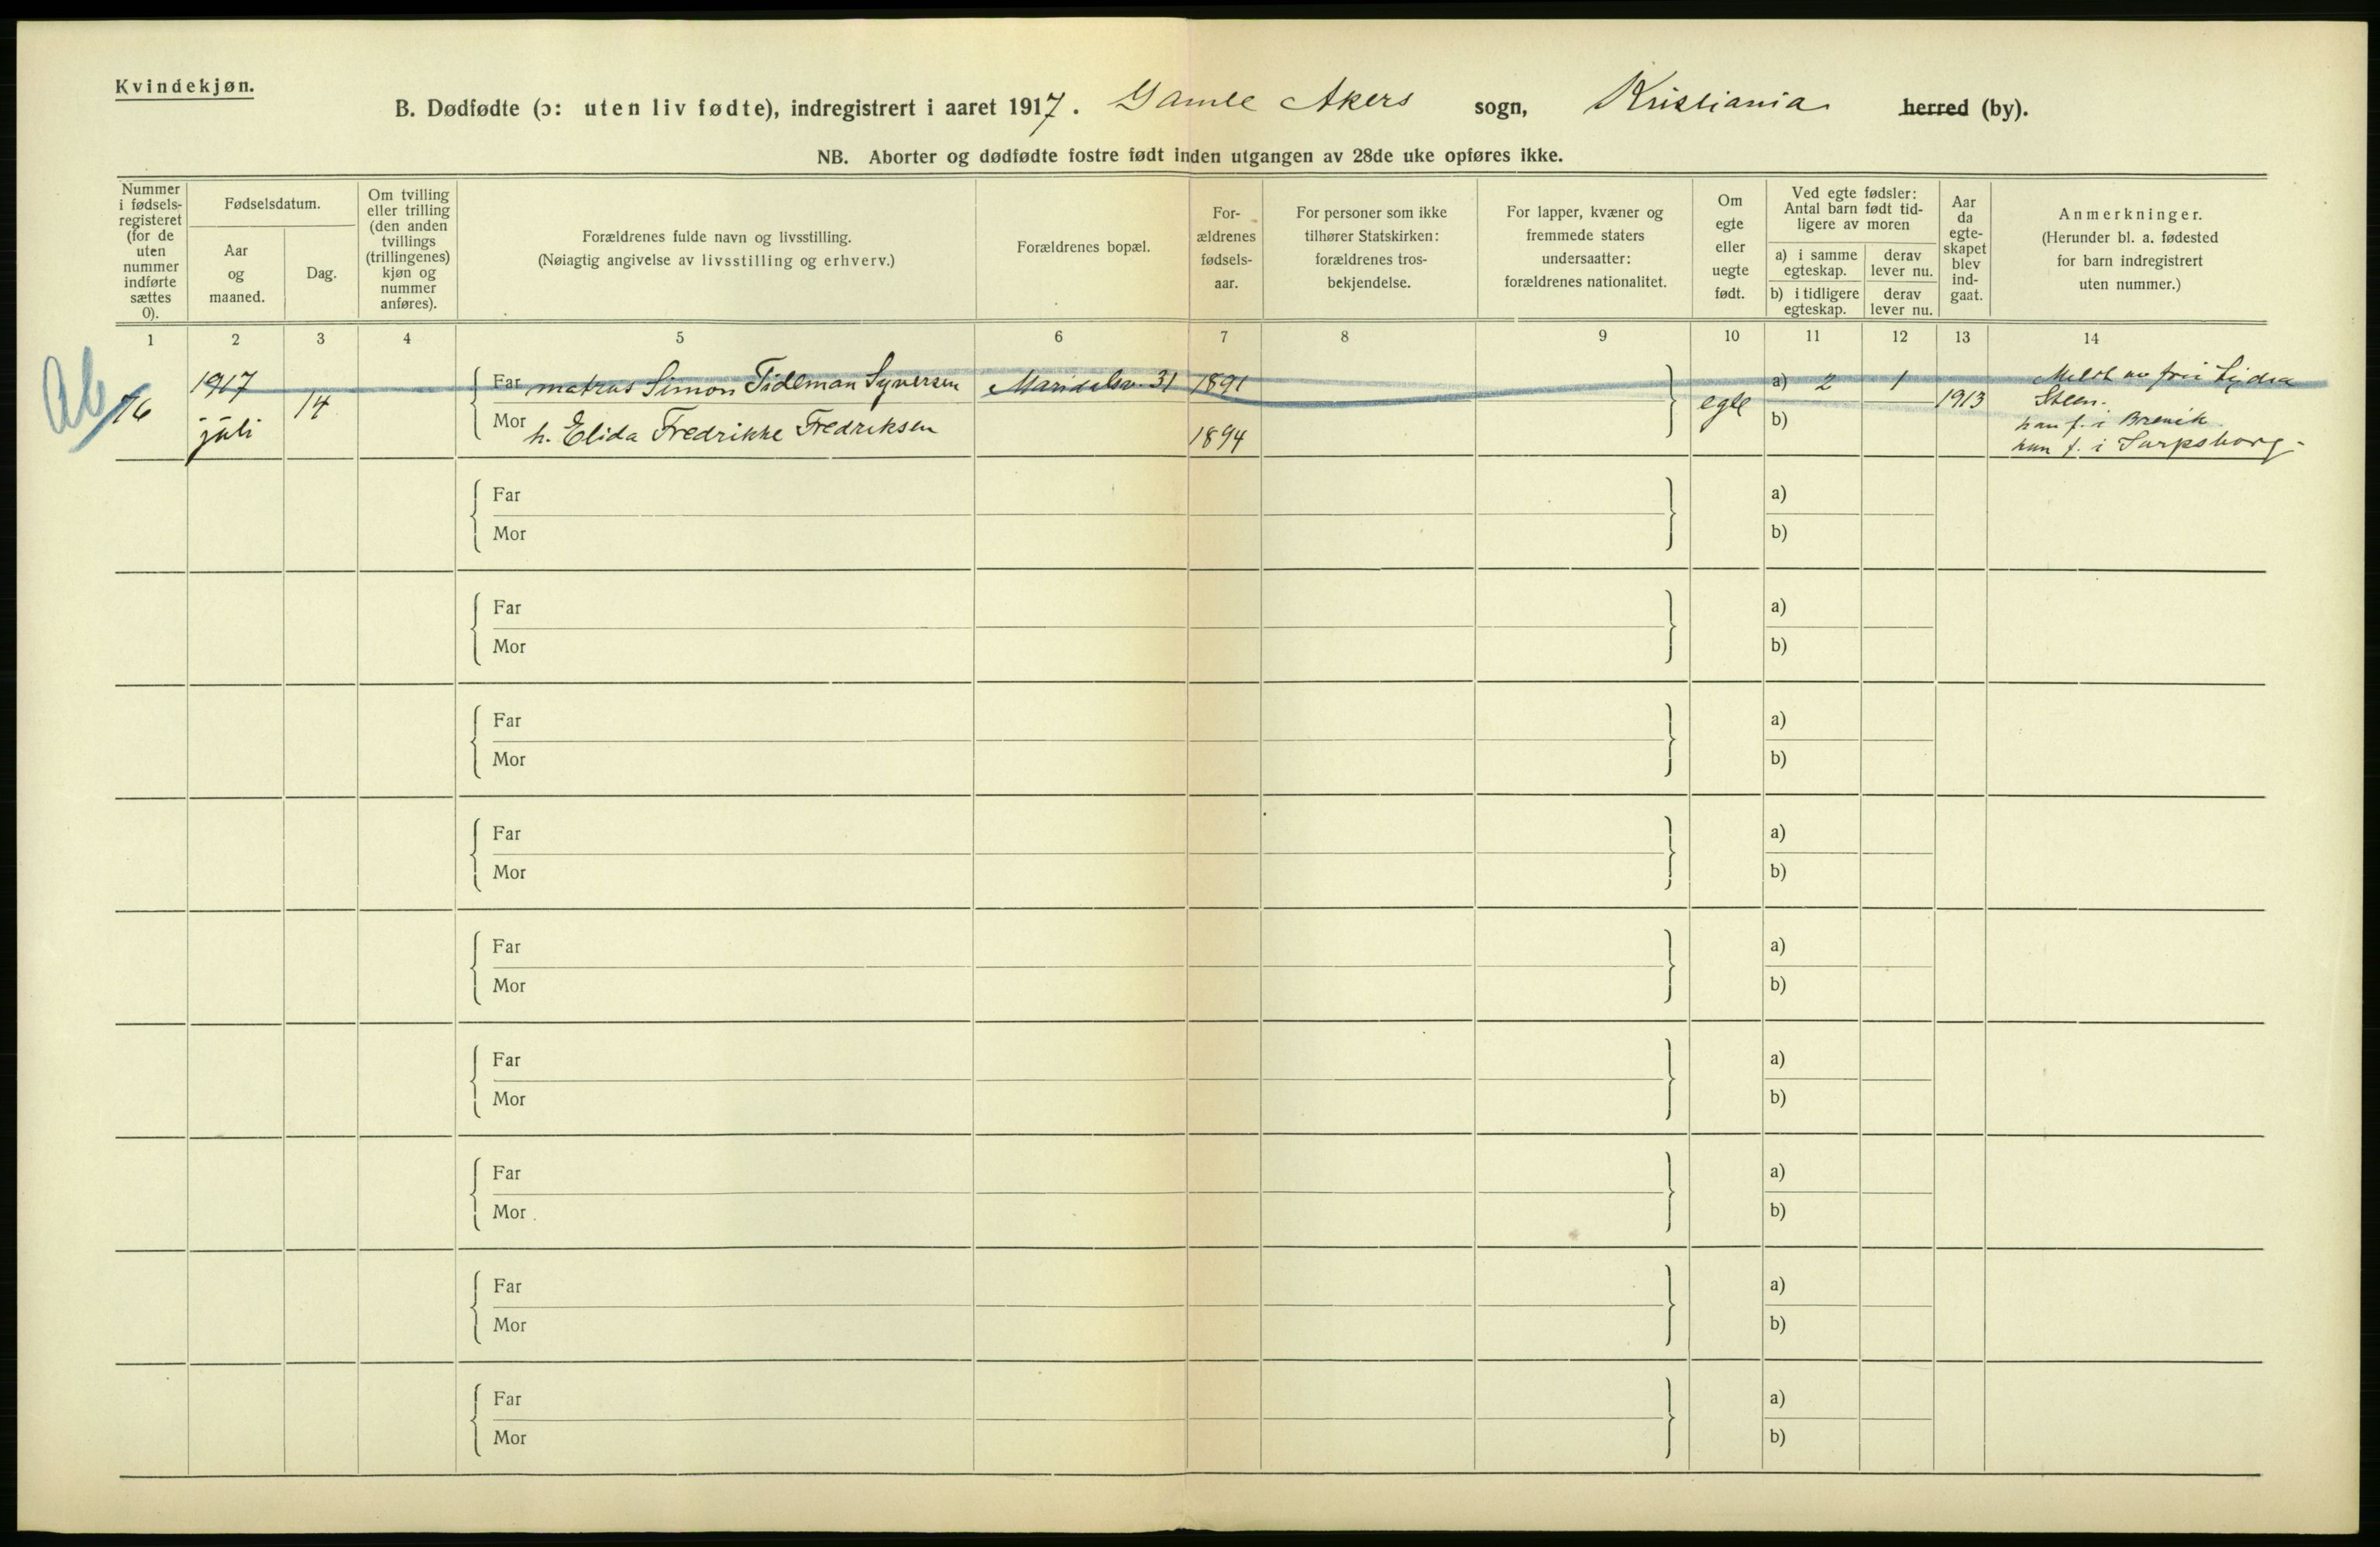 Kvindekjøn.
B. Dødfødte (ɔ: uten liv fødte), indregistrert i aaret 1917. Gamle Akers sogn, Kristiania herred (by).
NB. Aborter og dødfødte fostre født inden utgangen av 28de uke opføres ikke.
Nummer i fødsels-registeret (for de uten nummer indførte sættes 0).
Fødselsdatum.
Aar og maaned.
Dag.
Om tvilling eller trilling (den anden tvillings (trillingenes) kjøn og nummer anføres).
Forældrenes fulde navn og livsstilling.
(Nøiagtig angivelse av livsstilling og erhverv.)
Forældrenes bopæl.
For-ældrenes fødsels-aar.
For personer som ikke tilhører Statskirken: forældrenes tros-bekjendelse.
For lapper, kvæner og fremmede staters undersaatter: forældrenes nationalitet.
Om egte eller uegte født.
Ved egte fødsler: Antal barn født tid-ligere av moren
a) i samme egteskap.
derav lever nu.
b) i tidligere egteskap.
derav lever nu.
Aar da egte-skapet blev ind-gaat.
Anmerkninger.
(Herunder bl. a. fødested for barn indregistrert uten nummer.)
1 2 3 4 5 6 7 8 9 10 11 12 13 14
Ab
76 1917 juli 14
Far matros Simon Tideman Syversen Maridalsv. 31 1891
Mor h. Elida Fredrikke Fredriksen 1894
egte
a) 2 1
b)
1913
Meldt av fru Lydia
Steen.
han f. i Brevik.
hun f. i Sarpsborg-
Far a)
Mor b)
Far a)
Mor b)
Far a)
Mor b)
Far a)
Mor b)
Far a)
Mor b)
Far a)
Mor b)
Far a)
Mor b)
Far a)
Mor b)
Far a)
Mor b)